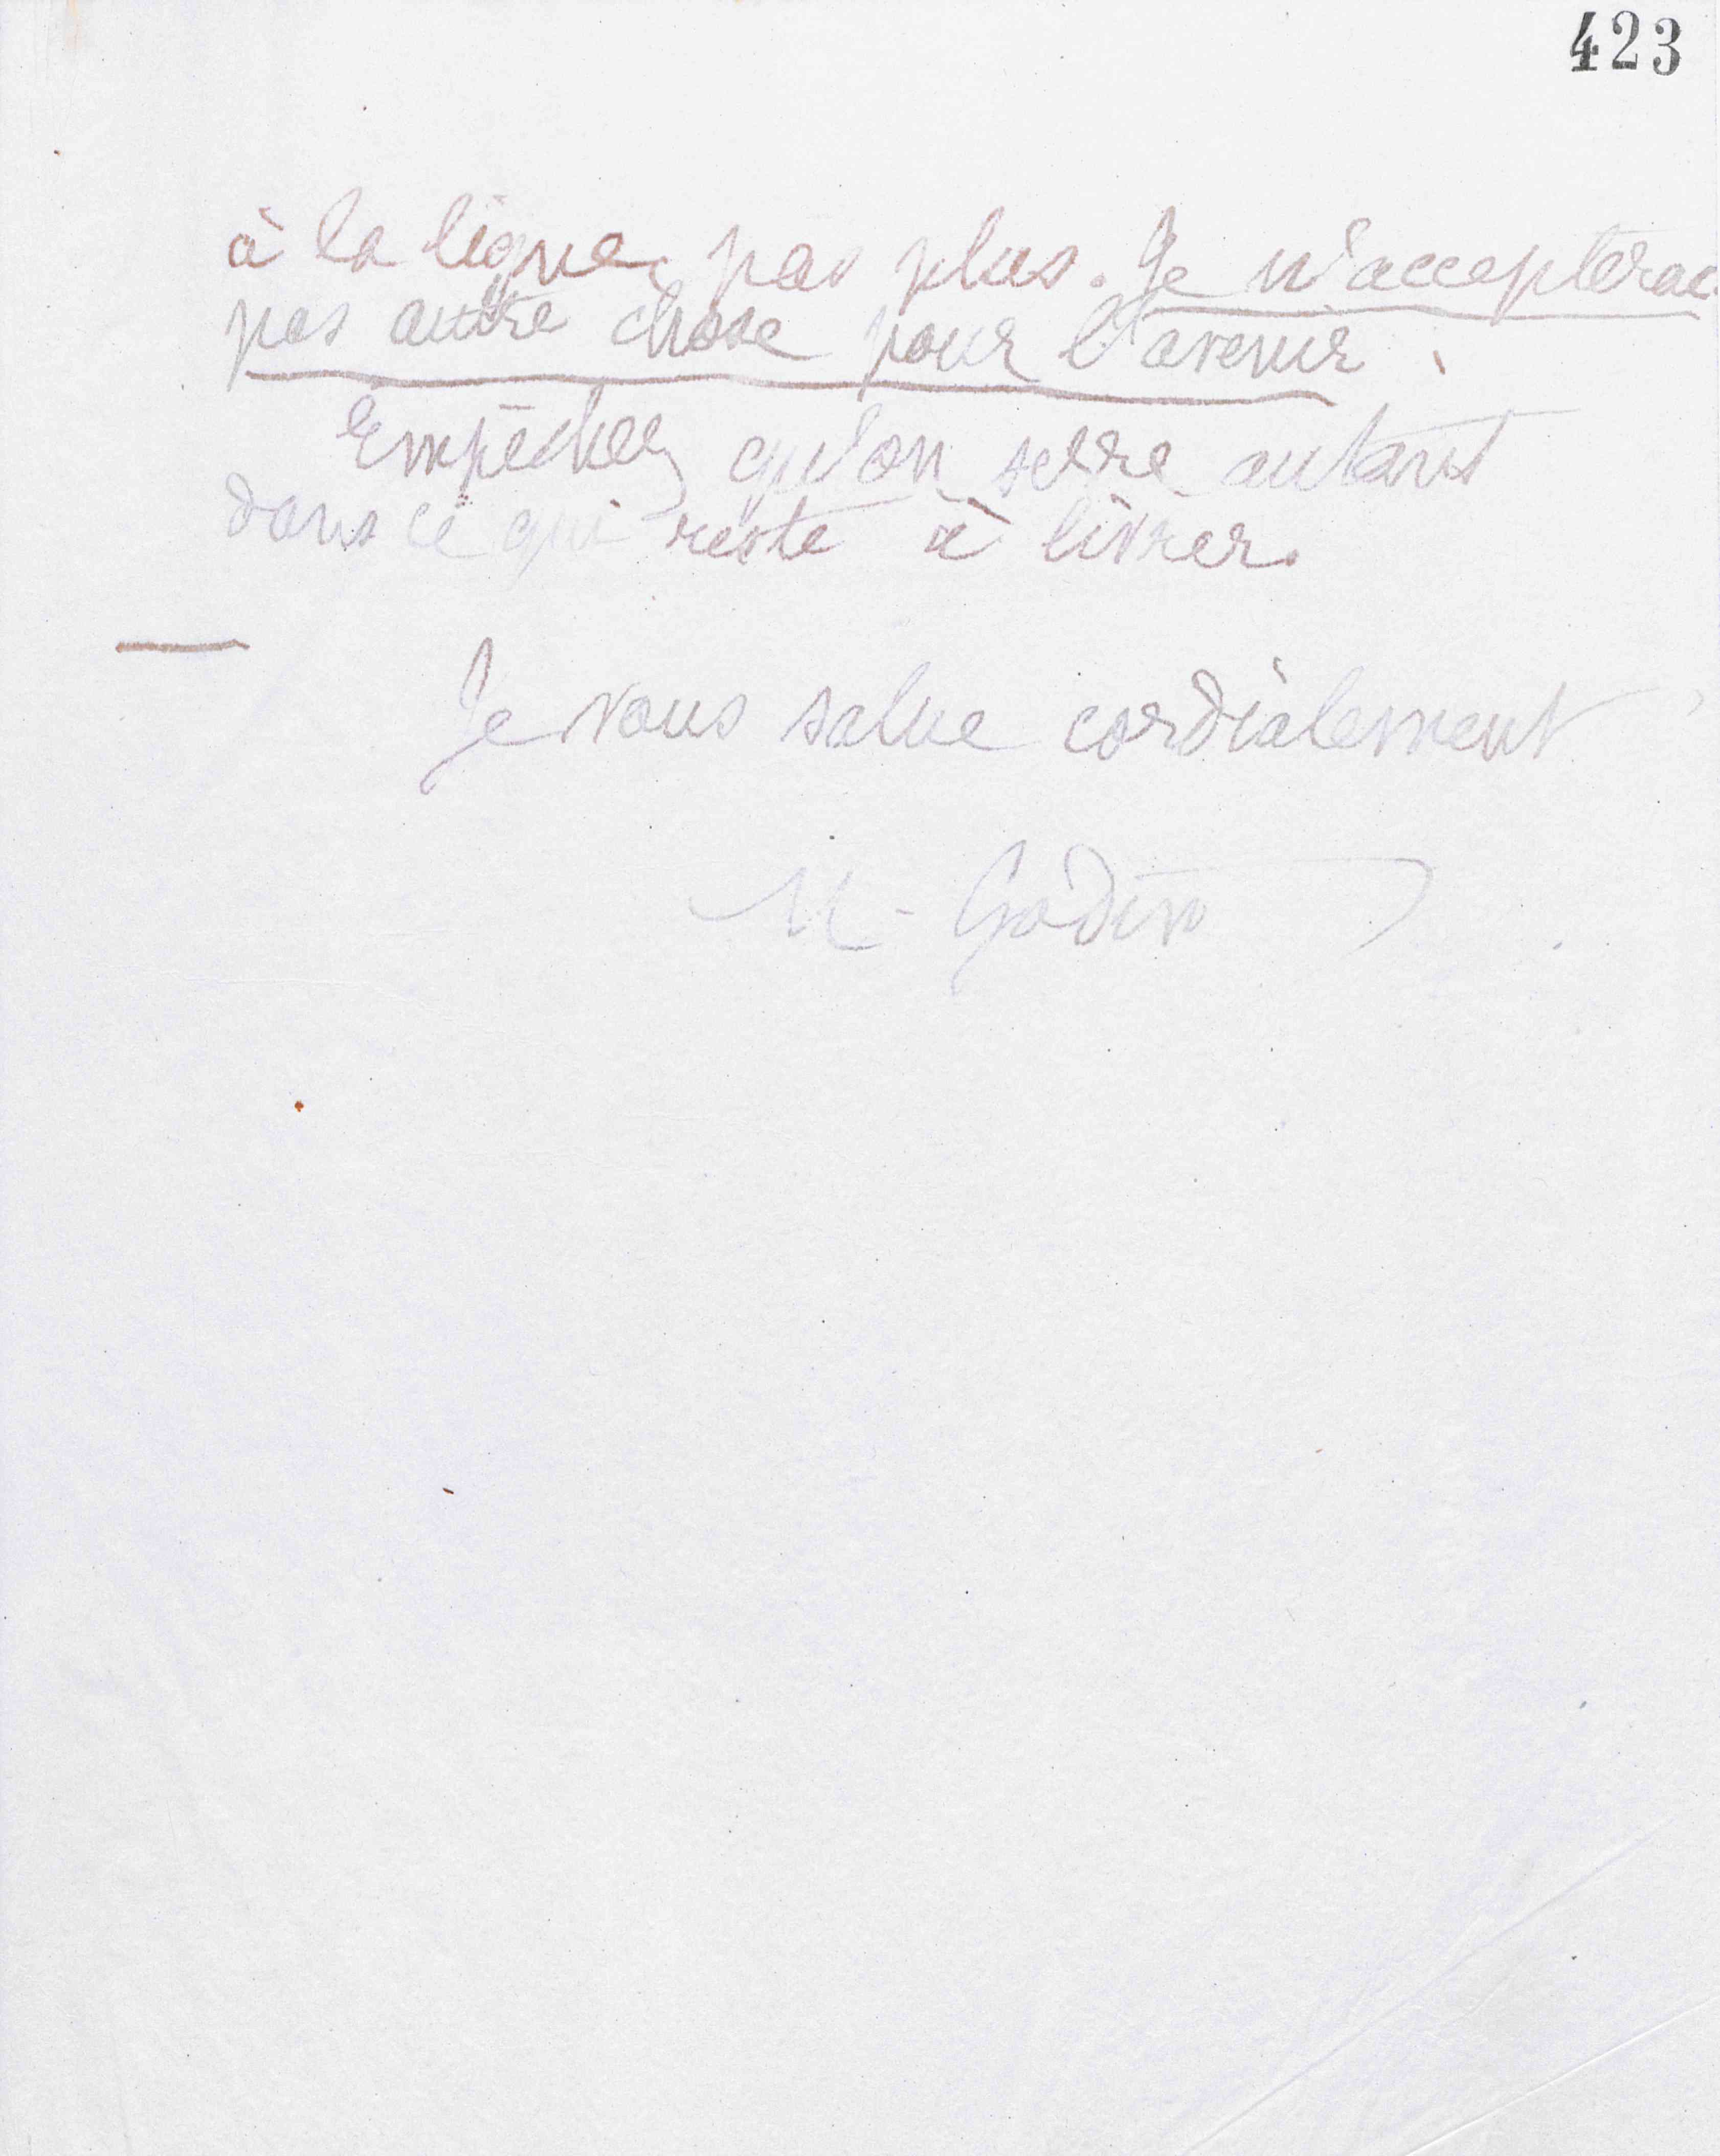 423
à la ligne, pas plus. Je n'accepterai
pas autre chose pour l'avenir.
Empêchez qu'on serre autant
dans ce qui reste à livrer.
Je vous salue cordialement
M. Godin